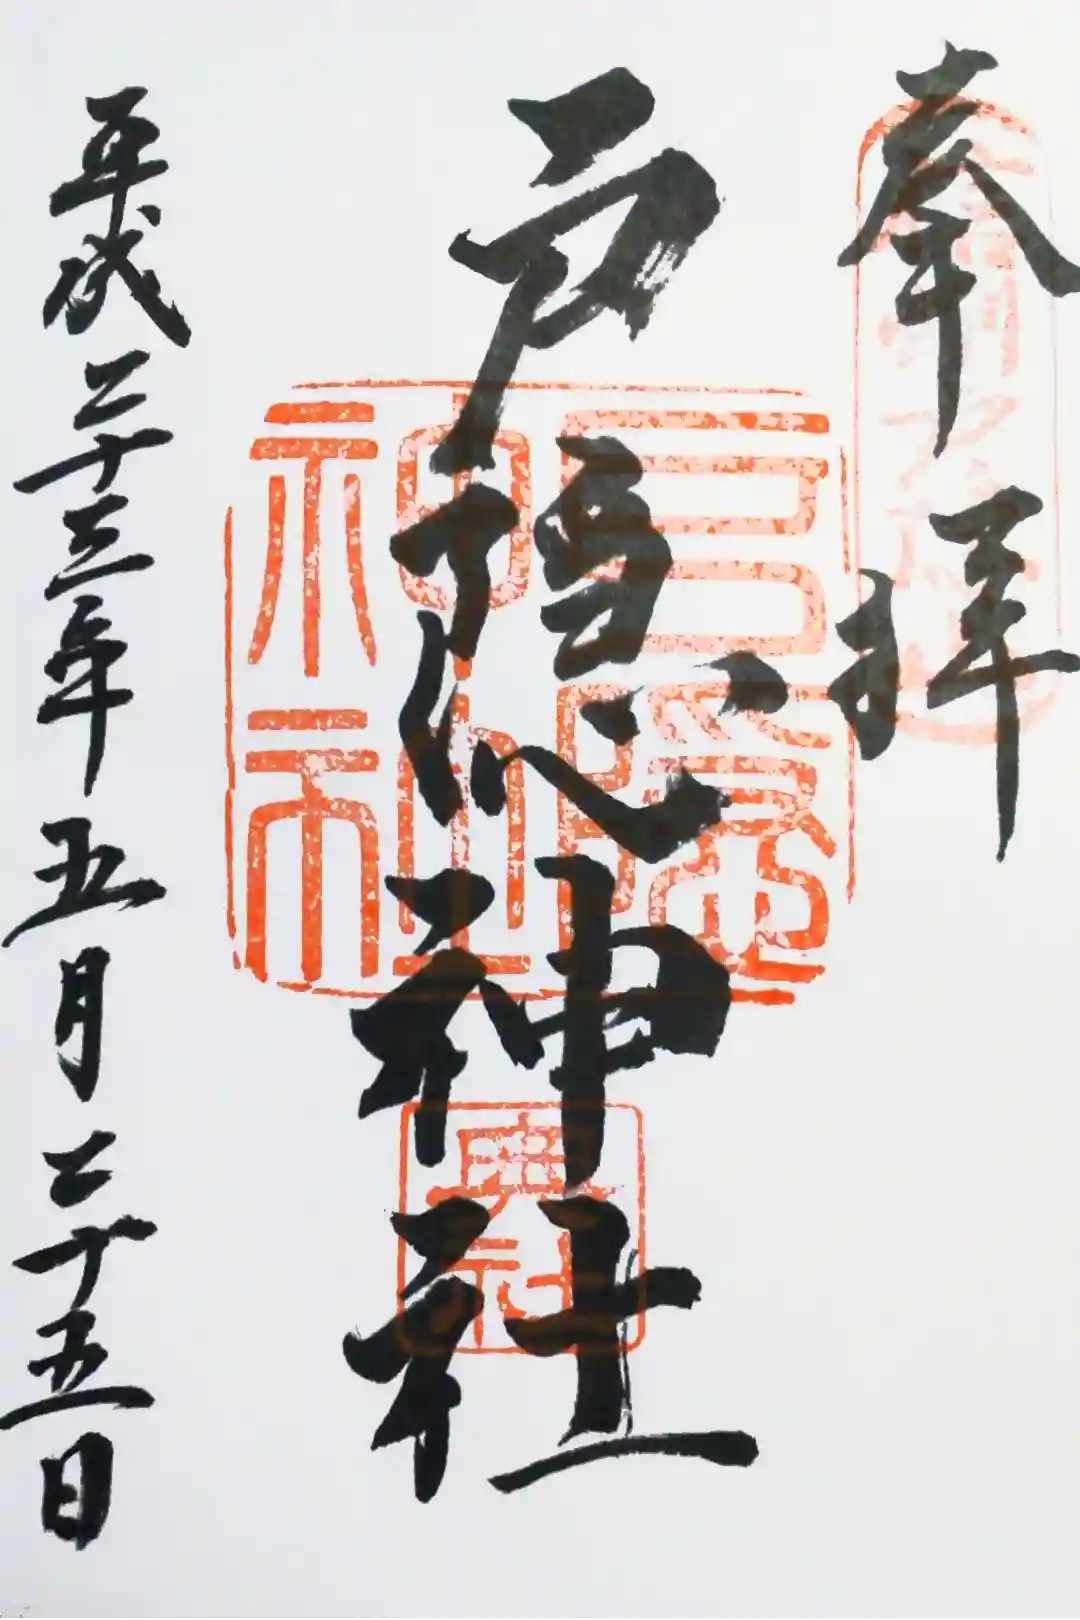 奉拝
戸隠神社
平成二十三年五月二十五日
戸隠
神社
奥社